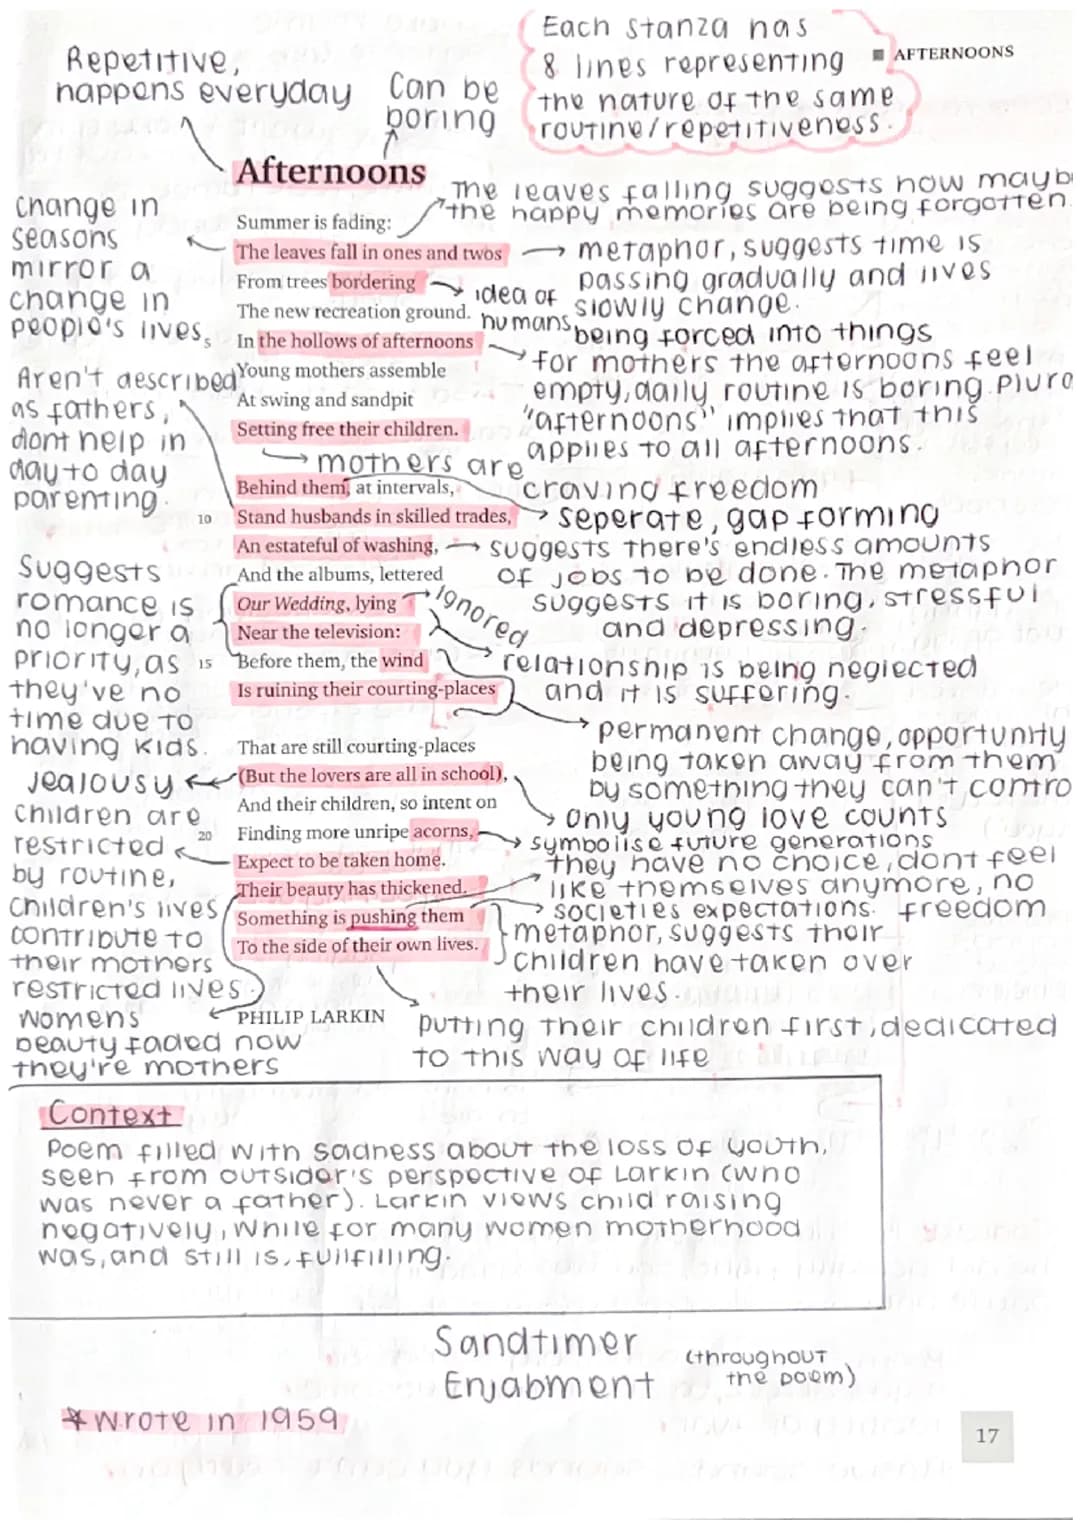 Each stanza has
8 lines representing
the nature of the same
routine/repetitiveness.
■ AFTERNOONS
Repetitive,
happens everyday
Can be
boring
Afternoons
The leaves falling suggests how mayb
the happy memories are being forgotten.
change in
seasons
mirror a
change in
people's lives
Summer is fading:
The leaves fall in ones and twos
From trees bordering
The new recreation ground.
5 In the hollows of afternoons
Young mothers assemble
At swing and sandpit
Setting free their children.
metaphor, suggests time is
passing gradually and lives
slowly change.
idea of
humans
being forced into things
for mothers the afternoons feel
empty, daily routine is boring. Plura
"afternoons" implies that this
applies to all afternoons.
Aren't described
as fathers,
dont help in
day to day
parenting.
mothers are
craving freedom
Behind them, at intervals,
10 Stand husbands in skilled trades,
An estateful of washing,
And the albums, lettered
Our Wedding, lying
Near the television:
15 Before them, the wind
Is ruining their courting-places
seperate, gap forming
suggests there's endless amounts
of jobs to be done. The metaphor
suggests it is boring, stressful
and depressing.
ignored
relationship is being neglected
and it is suffering.
Suggests
romance is
no longer a
priority, as
they've no
time due to
having kids.
permanent change, opportunity
being taken away from them
by something they can't contro
That are still courting-places
(But the lovers are all in school),
And their children, so intent on
20 Finding more unripe acorns,
Expect to be taken home.
Their beauty has thickened.
Something is pushing them
To the side of their own lives.
Jealousy
only young love counts
symbolise future generations
they have no choice, dont feel
like themselves anymore, no
freedom
societies expectations.
metaphor, suggests their
children have taken over
their lives.
children are
restricted
by routine,
children's lives
contribute to
their mothers
restricted lives
PHILIP LARKIN
womens
beauty faded now
they're mothers
putting their children first, dedicated
to this way of life
Context
Poem filled with sadness about the loss of youth,
seen from outsider's perspective of Larkin (who
was never a father). Larkin views child raising
negatively, while for many women motherhood
was, and still is, fullfilling.
Sandtimer
Enjabment
(throughout
the poem)
*Wrote in 1959
17